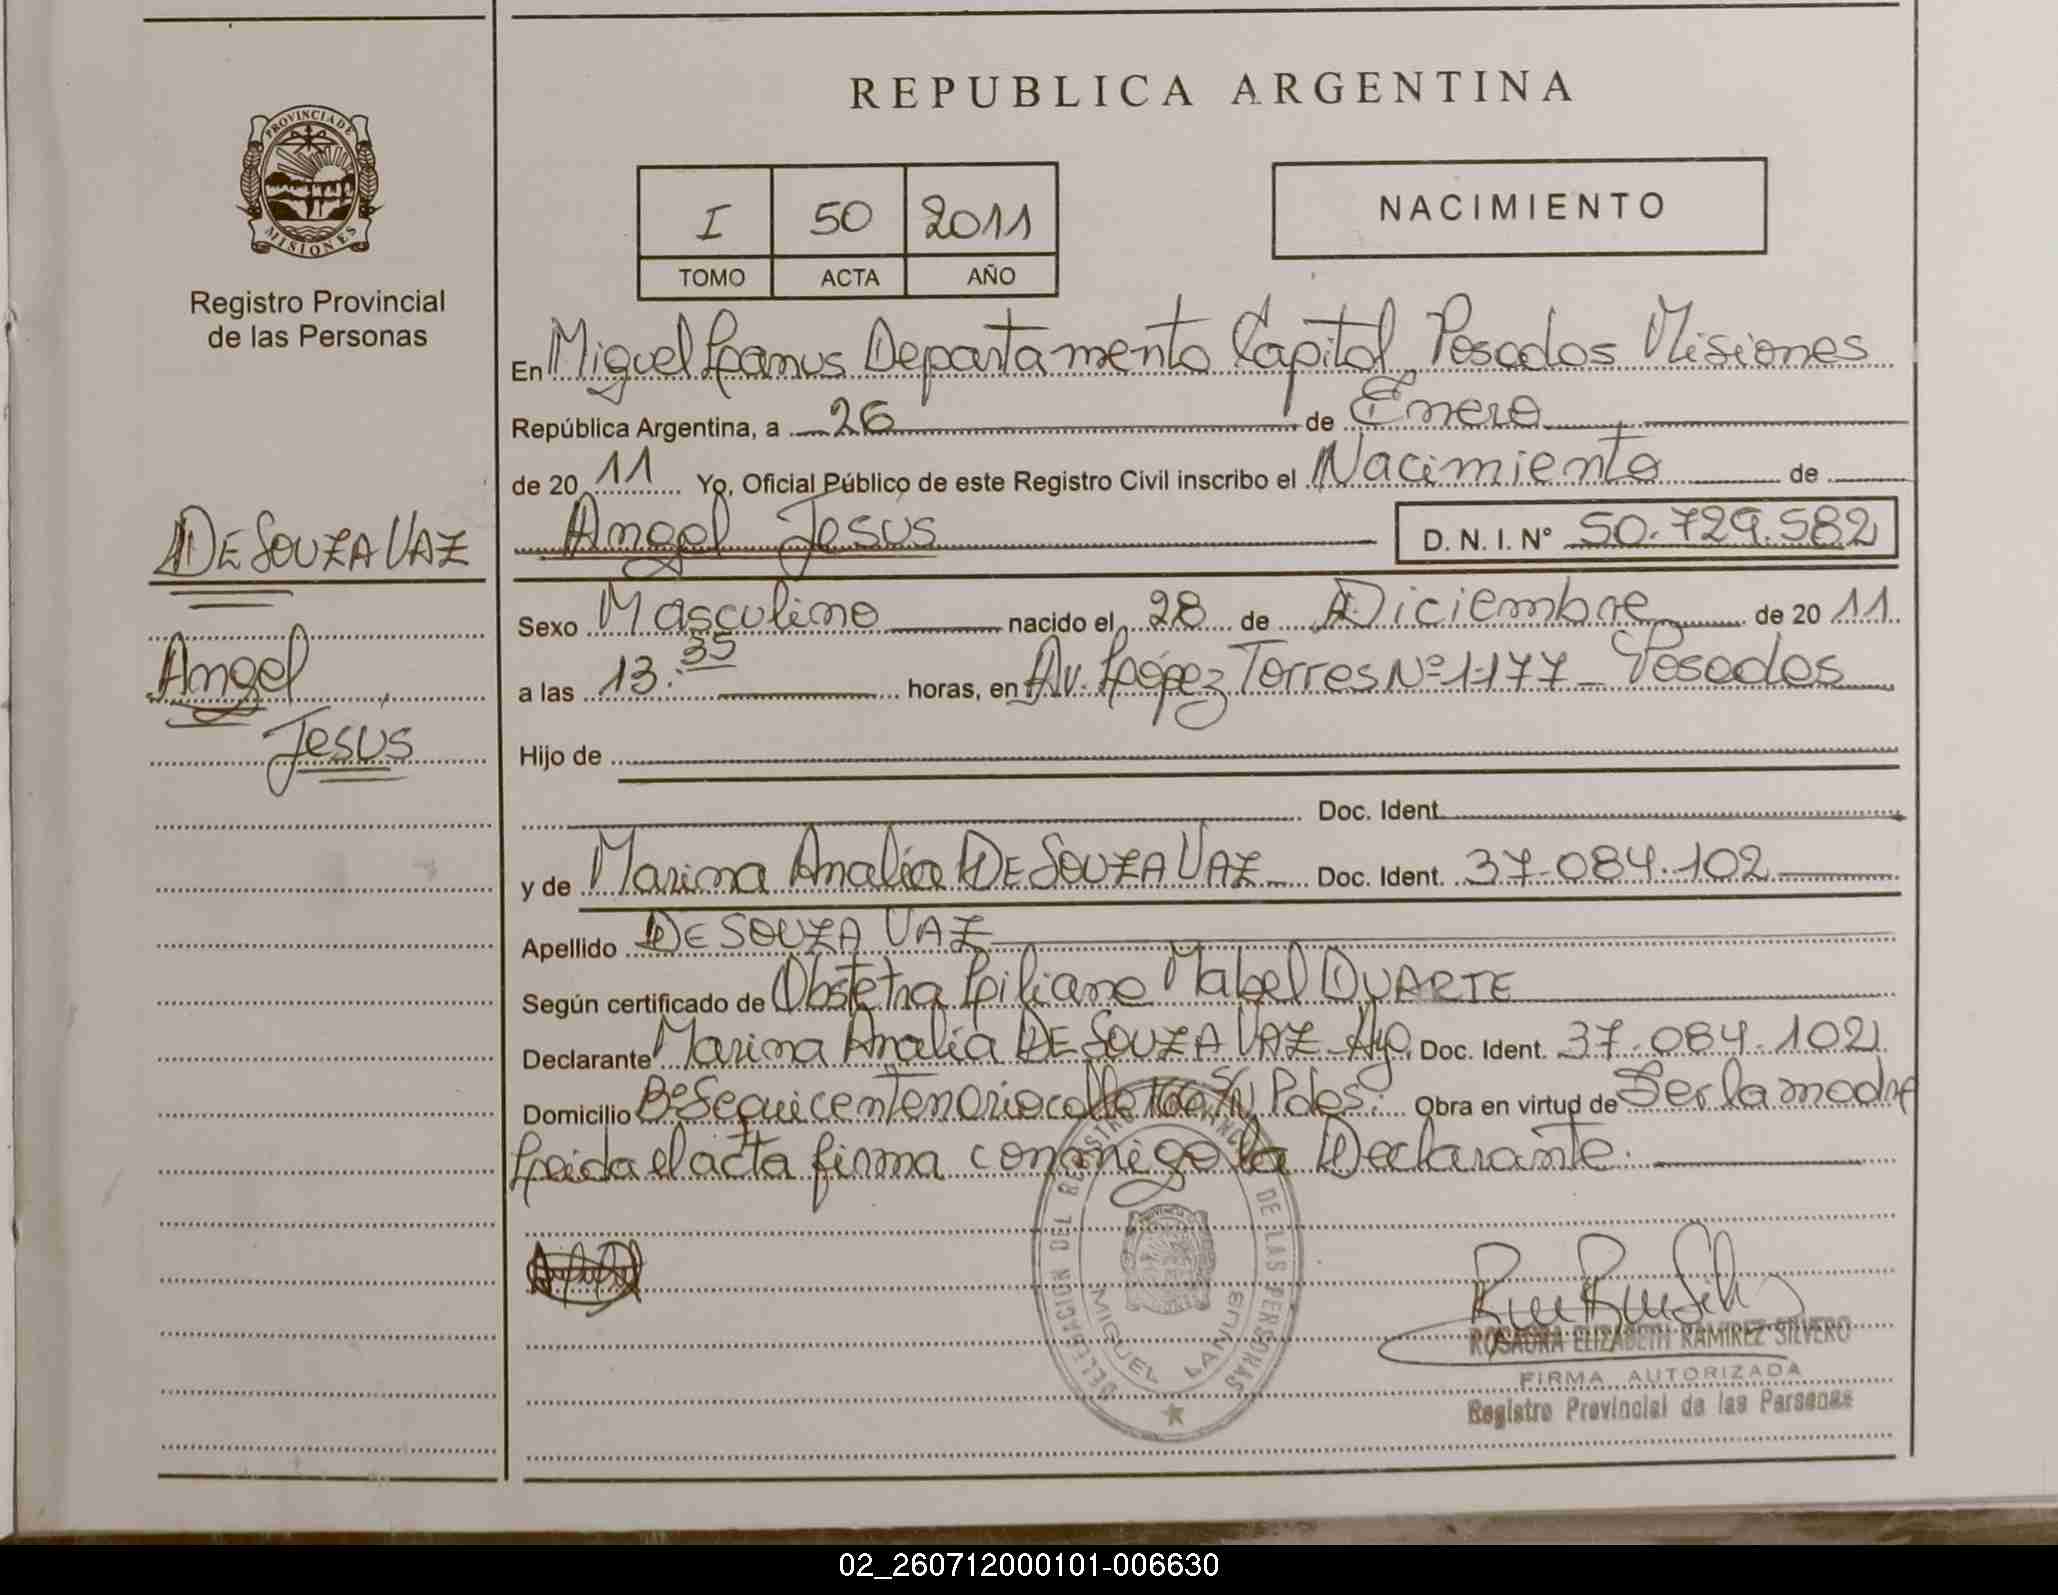 REPUBLICA ARGENTINA
PROVINCIA DE MISIONES
Registro Provincial
de las Personas
I 50 2011
TOMO ACTA AÑO
NACIMIENTO
En Miguel Lanus Departamento Capital Posadas Misiones
República Argentina, a 26 de Enero
de 20 11 Yo, Oficial Público de este Registro Civil inscribo el Nacimiento de
Angel Jesus D. N. I. N° 50.729.582
DE SOUZA VAZ
Angel
Jesus
Sexo Masculino nacido el 28 de Diciembre de 20 11
a las 13:35 horas, en Av. López Torres Nº 1177 - Posadas
Hijo de
Doc. Ident.
y de Marina Analia DE SOUZA VAZ Doc. Ident. 37.084.102
Apellido DE SOUZA VAZ
Según certificado de Obstetra Liliana Mabel DUARTE
Declarante Marina Analia DE SOUZA VAZ Arg. Doc. Ident. 37.084.102
Domicilio Bº Sequicentenario calle S/N Pdas. Obra en virtud de Ser la madre
Leida el acta firma conmigo la Declarante.
DELEGACION DEL REGISTRO PROVINCIAL DE LAS PERSONAS
MIGUEL LANUS
ROSAURA ELIZABETH RAMIREZ SILVERO
FIRMA AUTORIZADA
Registro Provincial de las Personas
02_260712000101-006630